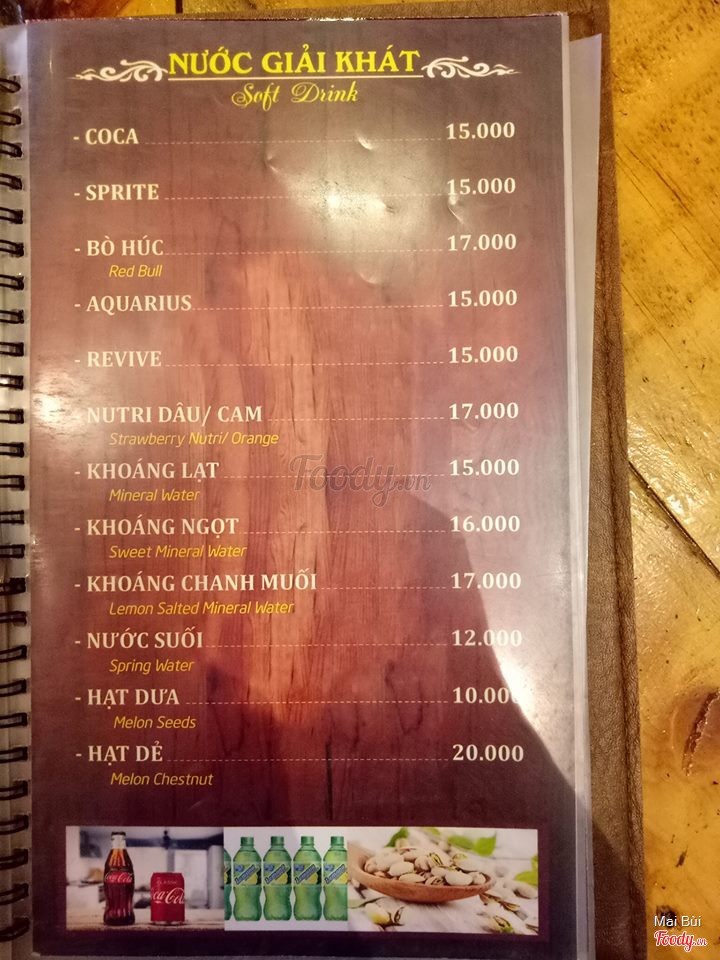 NƯỚC GIẢI KHÁT
Soft Drink
- COCA 15.000
- SPRITE 15.000
- BÒ HÚC 17.000
Red Bull
- AQUARIUS 15.000
- REVIVE 15.000
- NUTRI DÂU/ CAM 17.000
Strawberry Nutri/ Orange
- KHOÁNG LẠT 15.000
Mineral Water
Foody.vn
- KHOÁNG NGỌT 16.000
Sweet Mineral Water
- KHOÁNG CHANH MUỐI 17.000
Lemon Salted Mineral Water
- NƯỚC SUỐI 12.000
Spring Water
- HẠT DƯA 10.000
Melon Seeds
- HẠT DẺ 20.000
Melon Chestnut
Coca-Cola
Coca-Cola
Mai Bùi
Foody.vn